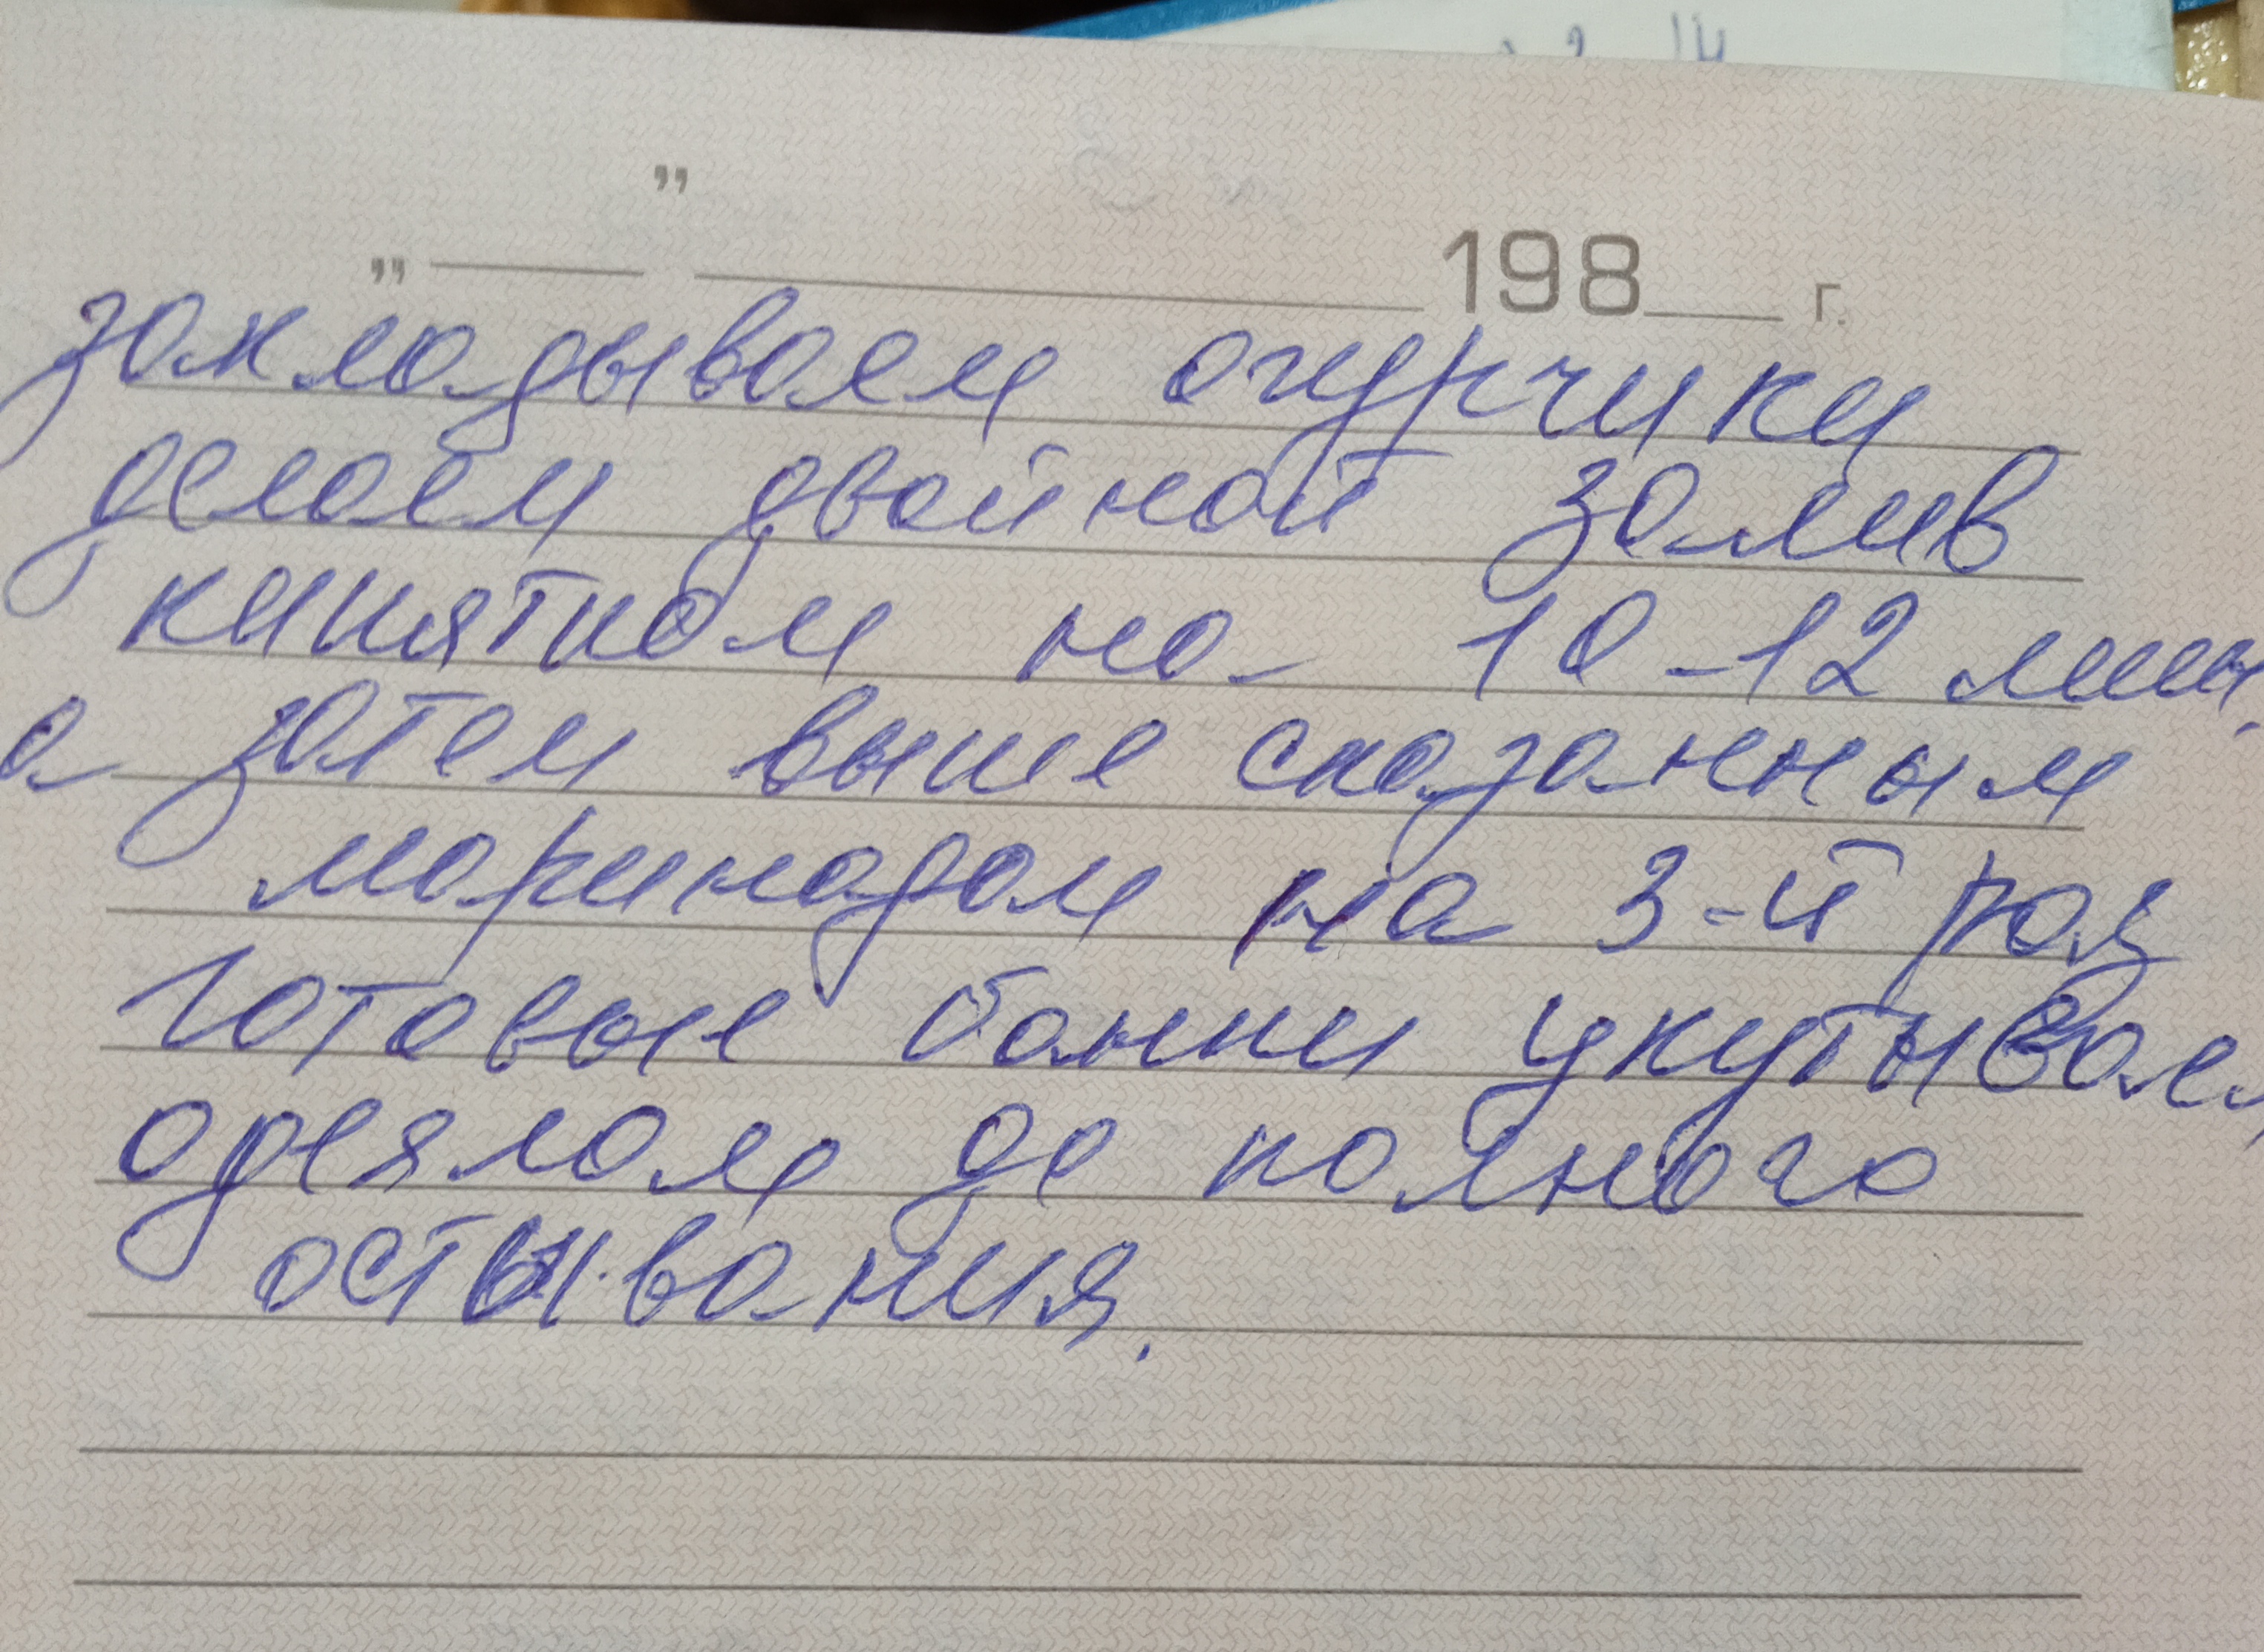 „ ” 198 г.
закладываем огурчики
делаем двойной залив
кипятком на 10-12 мин,
а затем выше сказанным
маринадом на 3-й раз
готовые банки укутываем
одеялом до полного
остывания.